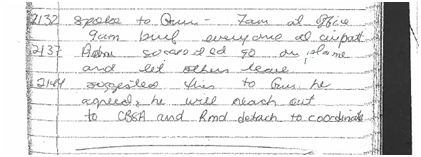 2132 spoke to Gun - 7am at office
9am brief everyone at airport
2137 Adam go on plane
and let others leave
2144 suggested this to Gun he
agreed, he will reach out
to CBSA and Rmd detach to coordinate